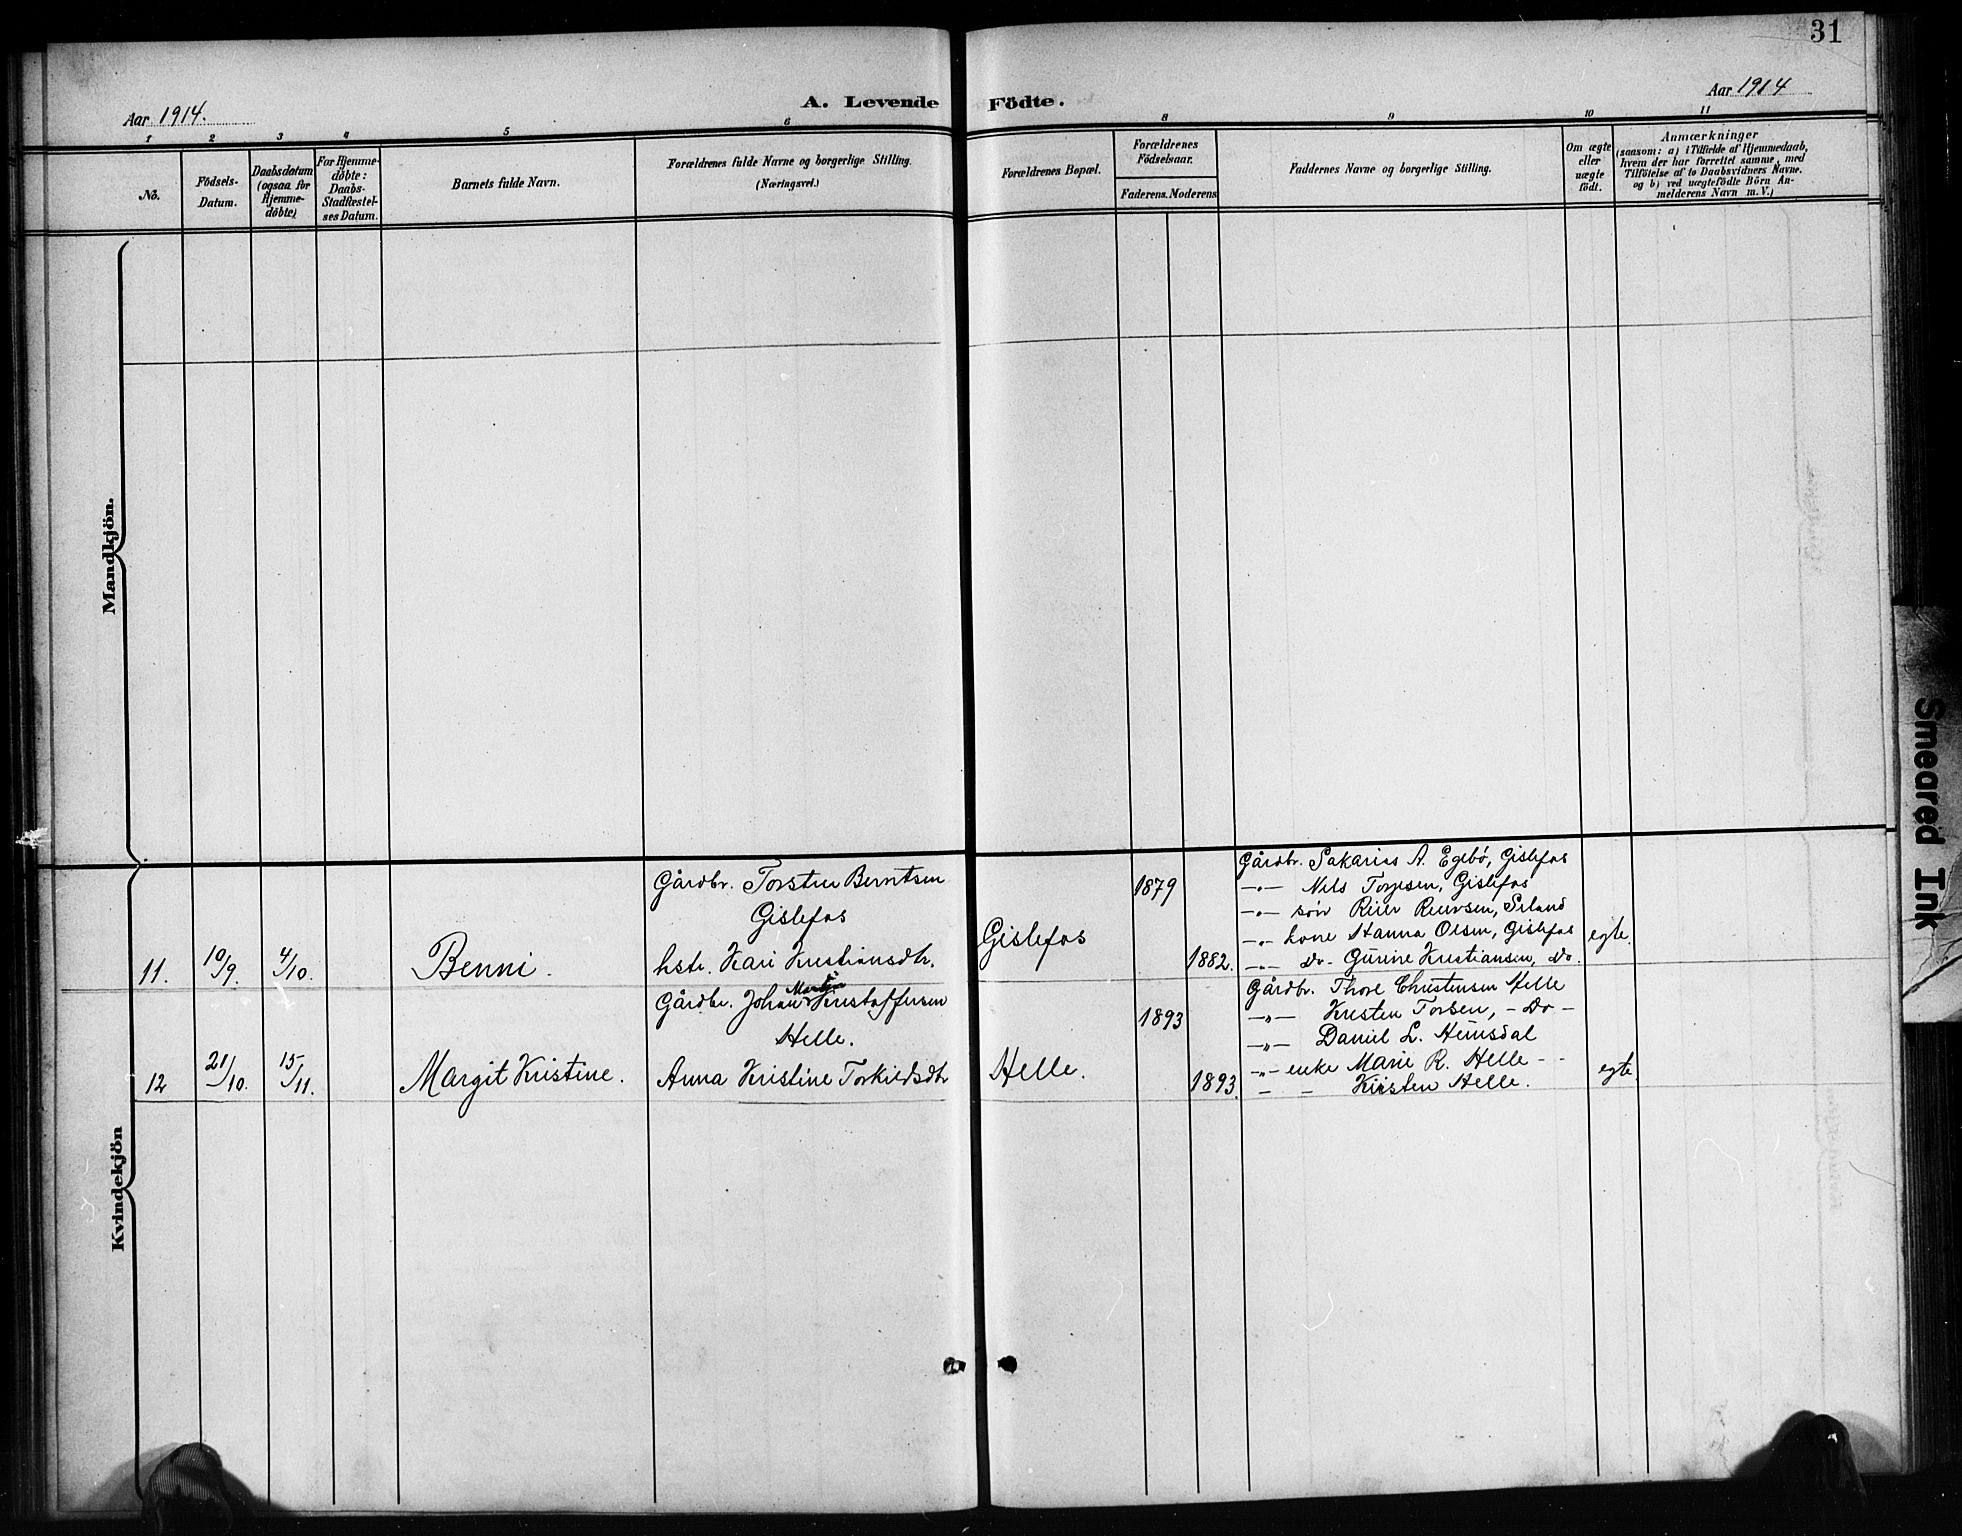 31
Aar 1914.
A. Levende Födte.
Aar 1914
1 2 3 4 5 6 8 9 10 11
No.
Födsels-
Datum.
Daabsdatum
(ogsaa for
Hjemme-
döbte)
For Hjemme-
döbte:
Daabs-
Stadfæstel-
ses Datum.
Barnets fulde Navn.
Forældrenes fulde Navne og borgerlige Stilling.
(Næringsvei.)
Forældrenes Bopæl.
Forældrenes
Födselsaar.
Faderens. Moderens
Faddernes Navne og borgerlige Stilling.
Om ægte
eller
uægte
födt.
Anmærkninger
(saasom: a) i Tilfælde af Hjemmedaab,
hvem der har forrettet samme, med
Tilföielse af to Daabsvidners Navne.
og b) ved uægtefödte Börn An-
melderens Navn m. V.)
Mandkjön.
Kvindekjön
11.
10/9.
4/10.
Benni.
Gårdbr. Torsten Berntsen
Gislefos
hstr. Kari Kristiansdtr.
Gislefos
1879
1882.
Gårdbr. Sakarias A. Egebø, Gislefos
-"- Nils Torjesen, Gislefos
-"- søn Reier Reiersen, Seland
-"- kone Hanna Olsen, Gislefos
-"- do- Gurine Kristiansen, do.
egte.
12
21/10.
15/11.
Margit Kristine.
Martin
Gårdbr. Johan Kristoffersen
Helle.
Anna Kristine Torkildsdtr
Helle.
1893
1893.
Gårdbr. Thore Christensen Helle
-"- Kristen Torsen, - Do -
-"- Daniel L. Heimsdal
-"- enke Marie R. Helle - -
- - Kristen Helle.
egte.
Smeared Ink